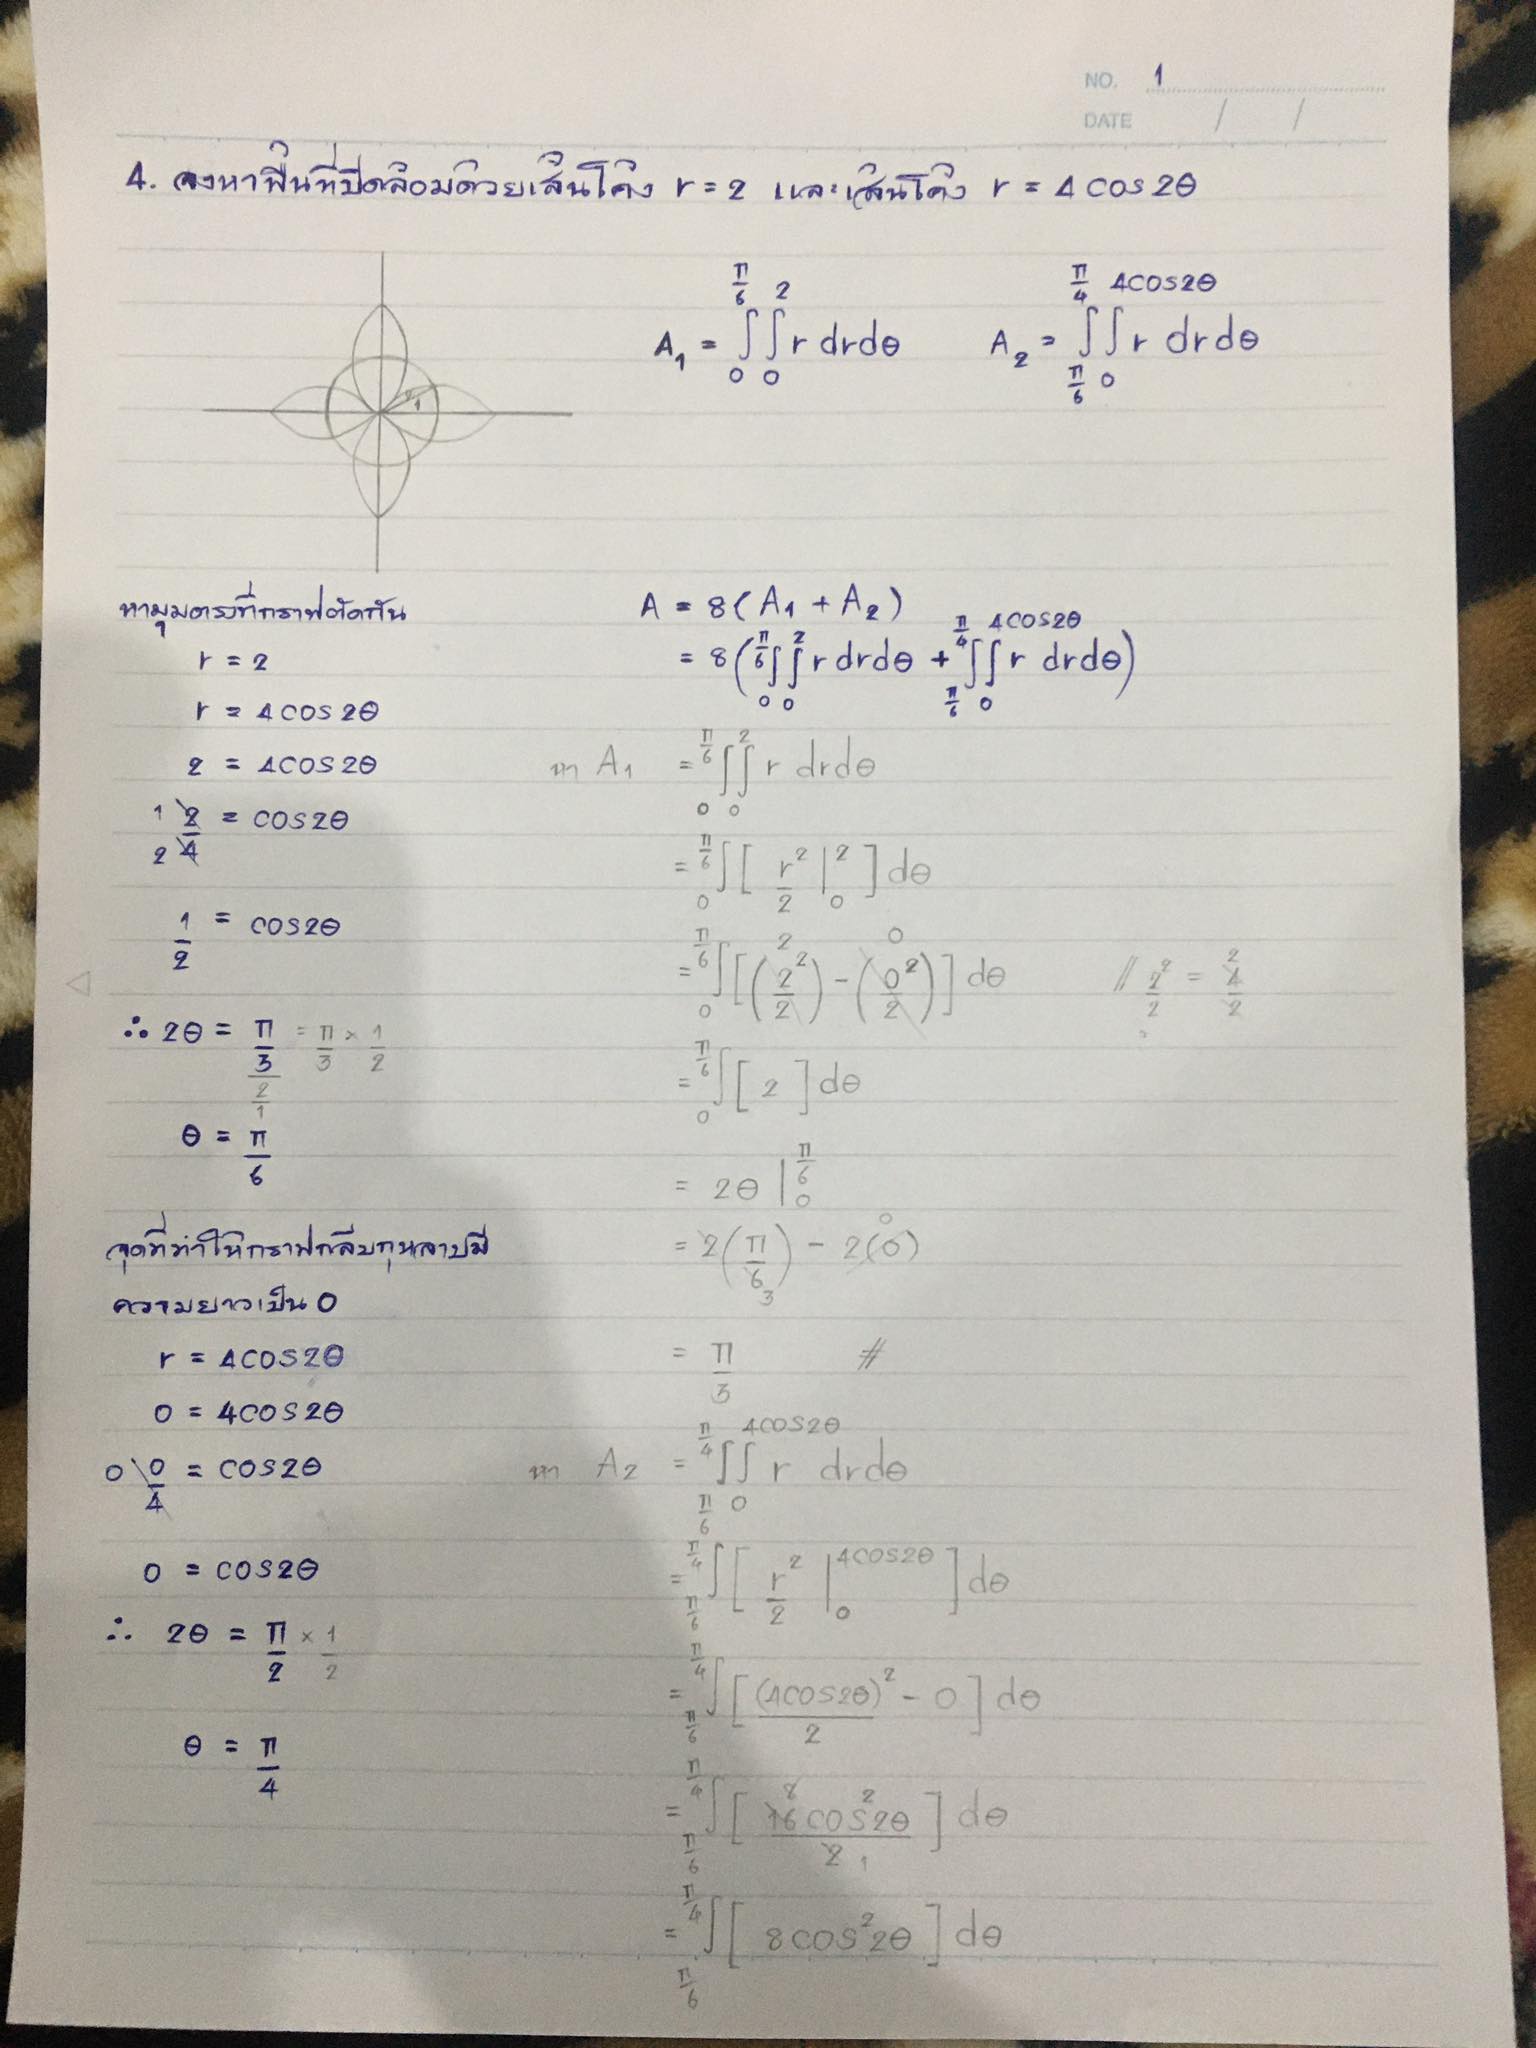 NO. 1
DATE / /
4. จงหาพื้นที่ปิดล้อมด้วยเส้นโค้ง r = 2 และเส้นโค้ง r = 4cos2θ
A₁ = ∫₀^(π/6) ∫₀^2 r drdθ A₂ = ∫_(π/6)^(π/4) ∫₀^(4cos2θ) r drdθ
1
หามุมตรงที่กราฟตัดกัน
r = 2
r = 4cos2θ
2 = 4cos2θ
1 2/4 2 = cos2θ
1/2 = cos2θ
∴ 2θ = π/3 / 2/1 = π/3 × 1/2
θ = π/6
จุดที่ทำให้กราฟกลีบกุหลาบมี
ความยาวเป็น 0
r = 4cos2θ
0 = 4cos2θ
0 0/4 = cos2θ
0 = cos2θ
∴ 2θ = π/2 × 1/2
θ = π/4
A = 8(A₁ + A₂)
= 8(∫₀^(π/6) ∫₀^2 r drdθ + ∫_(π/6)^(π/4) ∫₀^(4cos2θ) r drdθ)
หา A₁ = ∫₀^(π/6) ∫₀^2 r drdθ
= ∫₀^(π/6) [r²/2 |₀^2] dθ
= ∫₀^(π/6) [(2²/2) 2 − (0²/2) 0] dθ // 2²/2 = 4/2 2
= ∫₀^(π/6) [2] dθ
= 2θ |₀^(π/6)
= 2(π/6) 3 − 2(0) 0
= π/3 #
หา A₂ = ∫_(π/6)^(π/4) ∫₀^(4cos2θ) r drdθ
= ∫_(π/6)^(π/4) [r²/2 |₀^(4cos2θ)] dθ
= ∫_(π/6)^(π/4) [(4cos2θ)²/2 − 0] dθ
= ∫_(π/6)^(π/4) [8 16cos²2θ/2 1] dθ
= ∫_(π/6)^(π/4) [8cos²2θ] dθ